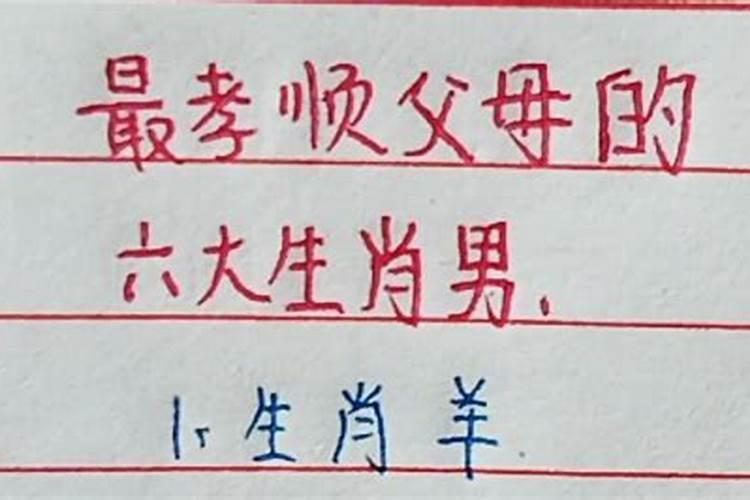 最孝顺父母的
六大生肖男.
1、生肖羊